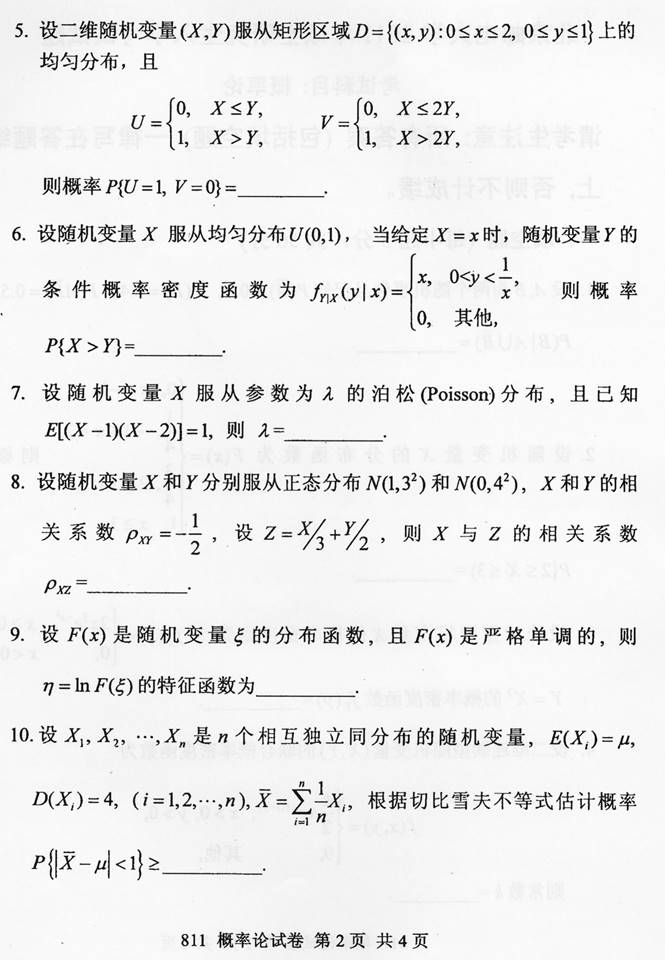 5. 设二维随机变量(X,Y)服从矩形区域D={(x,y):0≤x≤2, 0≤y≤1}上的
均匀分布，且
U={0, X≤Y, 1, X>Y, V={0, X≤2Y, 1, X>2Y,
则概率P{U=1, V=0}=________.
6. 设随机变量 X 服从均匀分布U(0,1)， 当给定 X=x时，随机变量Y的
条件概率密度函数为 f_{Y|X}(y|x)={x, 0<y<1/x, 0, 其他, 则概率
P{X>Y}=________.
7. 设随机变量 X 服从参数为 λ 的泊松(Poisson)分布，且已知
E[(X-1)(X-2)]=1, 则 λ=________.
8. 设随机变量X和Y分别服从正态分布N(1,3²)和N(0,4²)，X和Y的相
关系数 ρ_{XY}=-1/2，设 Z=X/3+Y/2，则 X 与 Z 的相关系数
ρ_{XZ}=________.
9. 设 F(x)是随机变量ξ的分布函数, 且F(x)是严格单调的，则
η=ln F(ξ)的特征函数为________.
10. 设 X₁, X₂, ⋯, Xₙ是n个相互独立同分布的随机变量, E(Xᵢ)=μ,
D(Xᵢ)=4, (i=1,2,⋯,n), X̄=∑_{i=1}^{n} 1/n Xᵢ, 根据切比雪夫不等式估计概率
P{|X̄-μ|<1}≥________.
811 概率论试卷 第2页 共4页